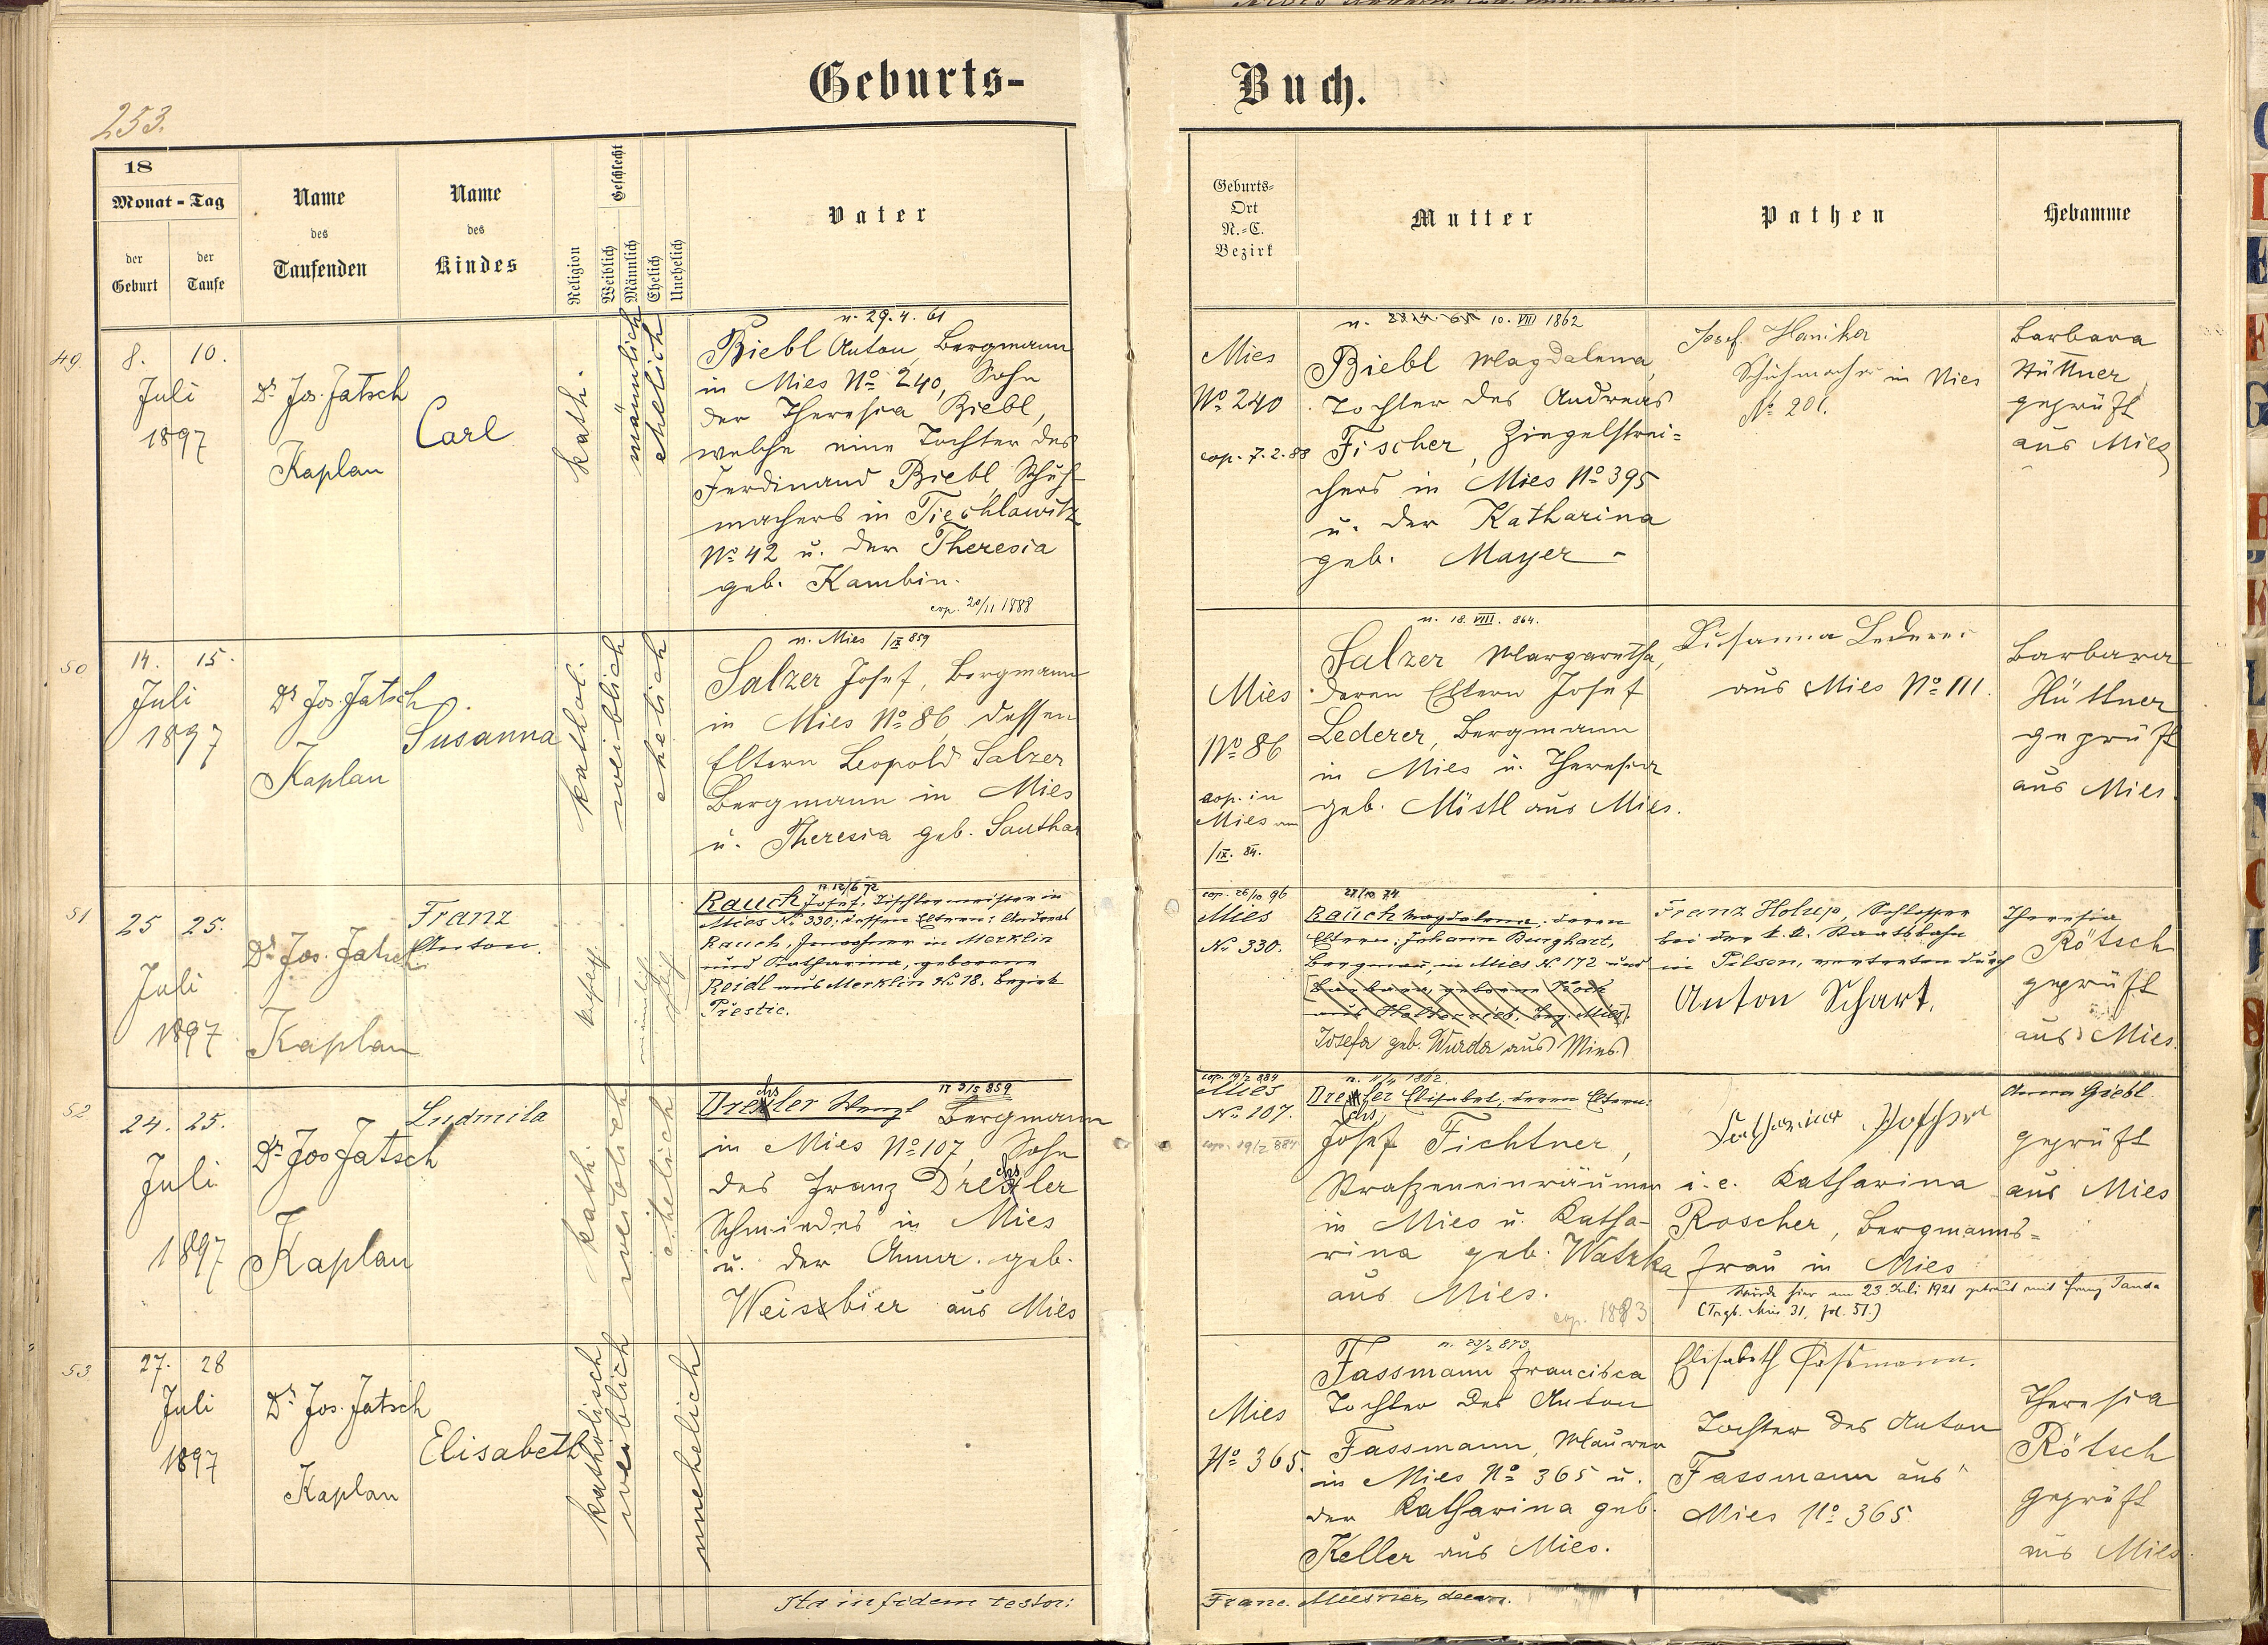 Geburts-
Buch.
253.
18
Monat - Tag
der Geburt
der Taufe
Name des Taufenden
Name des Kindes
Religion
Geschlecht
Weiblich
Männlich
Ehelich
Unehelich
Vater
Geburts-
Ort
N.-C.
Bezirk
Mutter
Pathen
Hebamme
49.
8. 10.
Juli
1897
Dr Jos. Jatsch
Kaplan
Carl
kath.
männlich
ehelich
n. 29. 4. 61
Biebl Anton, Bergmann
in Mies No 240, Sohn
der Theresia Biebl,
welche eine Tochter des
Ferdinand Biebl, Schuh-
machers in Tiechlowitz
No 42 u. der Theresia
geb. Kambin.
cop. 20/11 1888
Mies
No 240
cop. 7.2.88
n. 10. VIII 1862
Biebl Magdalena,
Tochter des Andreas
Fischer, Ziegelstrei-
chers in Mies No 395
u. der Katharina
geb. Mayer -
Josef Hanika
Schuhmacher in Mies
No 201.
Barbara
Hüttner
geprüft
aus Mies
50
14. 15.
Juli
1897
Dr Jos. Jatsch
Kaplan
Susanna
kathol.
weiblich
ehelich
n. Mies 1/IX 859
Salzer Josef, Bergmann
in Mies No 86, dessen
Eltern Leopold Salzer
Bergmann in Mies
u. Theresia geb. Southar
Mies
No 86
cop. in
Mies am
1/IX. 84.
n. 18. VIII. 864.
Salzer Margaretha,
deren Eltern Josef
Lederer, Bergmann
in Mies u. Theresia
geb. Mistl aus Mies.
Susanna Lederer
aus Mies No 111.
Barbara
Hüttner
geprüft
aus Mies.
51
25 25.
Juli
1897
Dr Jos. Jatsch
Kaplan
Franz
Anton.
kath
männlich
ehel.
n. 12/6 72
Rauch Josef, Tischlermeister in
Mies No. 330; dessen Eltern: Andreas
Rauch, Inwohner in Merklin
und Katharina, geborene
Reidl aus Merklin No 18. Bezirk
Přestic.
cop. 26/10 96
Mies
No. 330.
27/10 74
Rauch Magdalena, deren
Eltern: Johann Burghart,
Bergman, in Mies N. 172 und
Josefa geb. Wurda aus Mies.
Franz Holuep, Schlosser
bei der k. k. Staatsbahn
in Pilsen, vertreten durch
Anton Schart.
Theresia
Rötsch
geprüft
aus Mies.
52
24. 25.
Juli
1897
Dr Jos Jatsch
Kaplan
Ludmila
kath.
weiblich
ehelich
n 3/5 859
Drechsler Wenzl Bergmann
in Mies No 107, Sohn
des Franz Drechsler
Schmiedes in Mies
u. der Anna geb.
Weissbier aus Mies
cop. 19/2 884
Mies
No. 107.
cop. 19/2 884
n. 11/11 1862.
Drechsler Elisabet, deren Eltern:
Josef Fichtner,
Straßeneinräumer
in Mies u. Katha-
rina geb. Watzka
aus Mies.
cop. 1883
Katharina Roscher
i. e. Katharina
Roscher, Bergmanns-
frau in Mies
Wurde hier am 23. Juli 1921 getraut mit Franz Janda
(Trgb. Mies 31, fol. 51.)
Anna Giebl
geprüft
aus Mies
53
27. 28
Juli
1897
Dr Jos. Jatsch
Kaplan
Elisabeth
katholisch
weiblich
unehelich
Mies
No 365.
n. 23/2 873
Fassmann Francisca
Tochter des Anton
Fassmann, Maurer
in Mies No 365 u.
der Katharina geb.
Keller aus Mies.
Elisabeth Fassmann.
Tochter des Anton
Fassmann aus
Mies No 365
Theresia
Rötsch
geprüft
aus Mies.
Ita in fidem testor:
Franc. Miesner, decan.